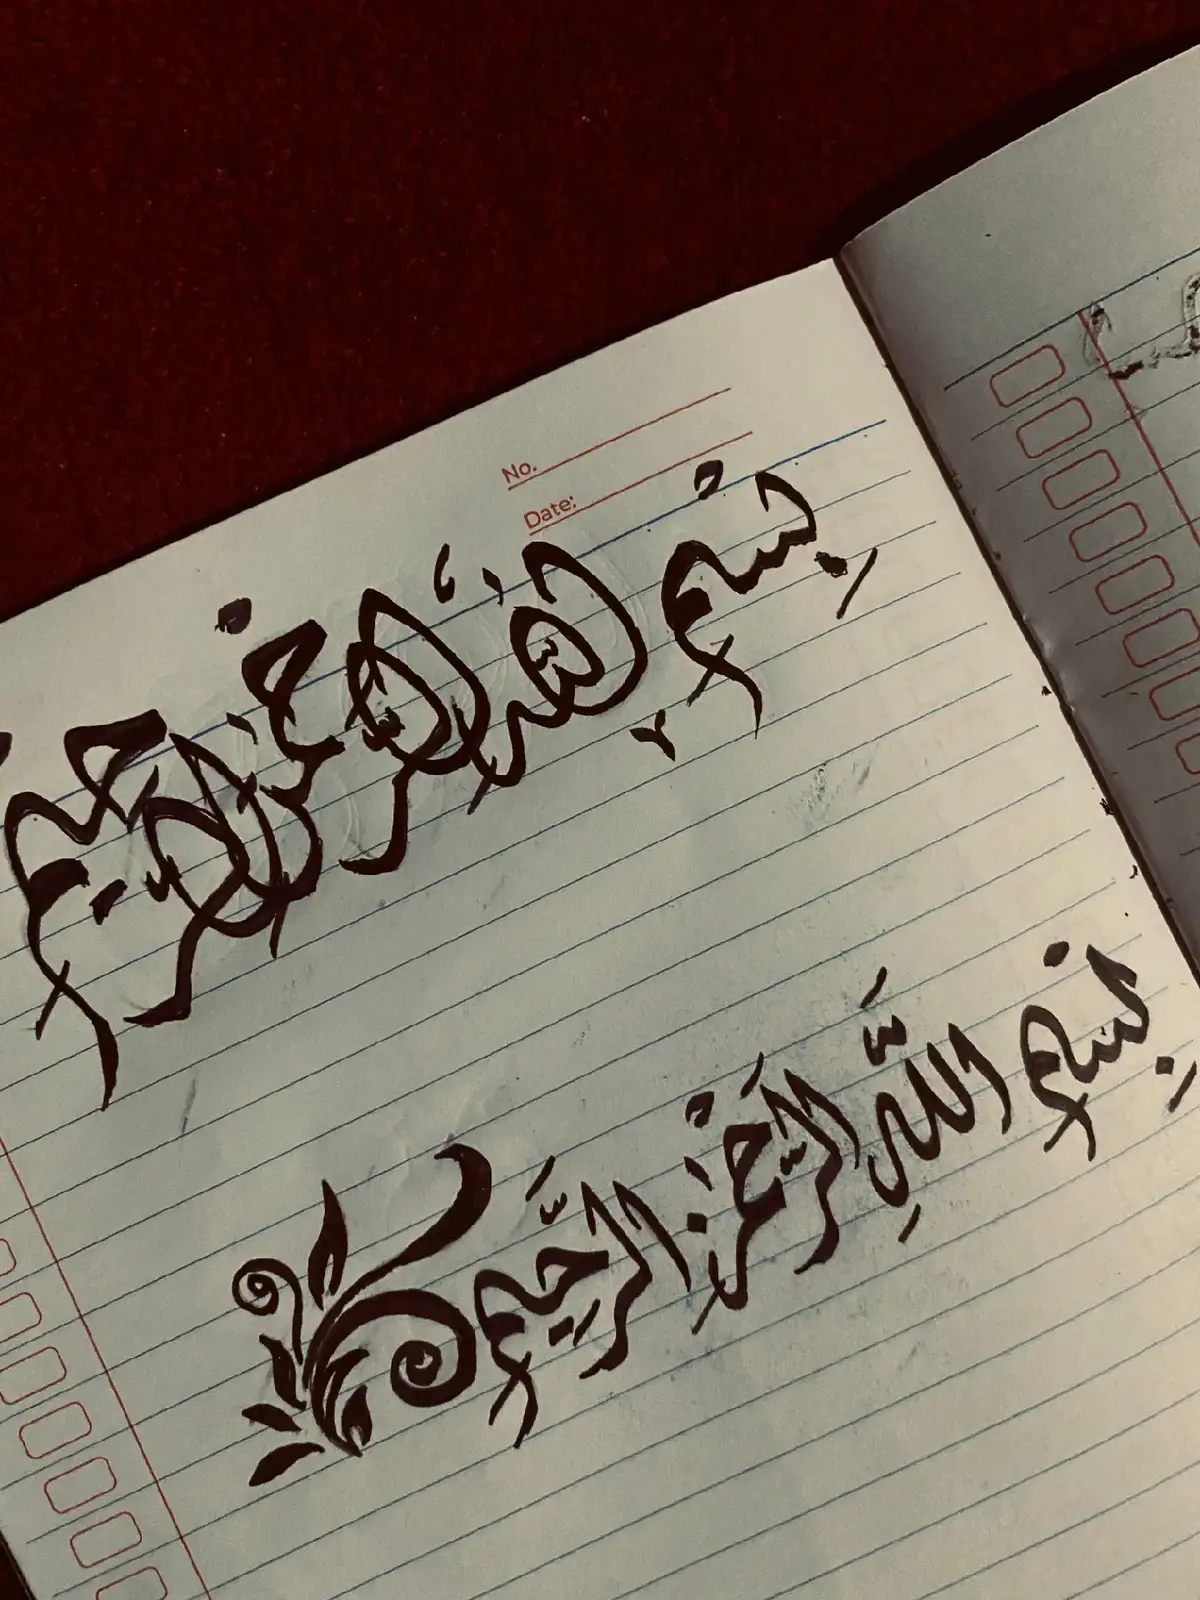 No.
Date:
بسم الله الرحمن الرحيم
بِسْمِ اللَّهِ الرَّحْمَنِ الرَّحِيمِ